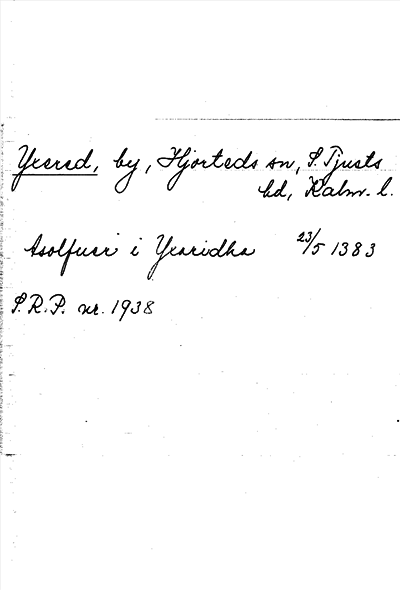 Yxered, by, Hjorteds sn, S. Tjusts
hd, Kalm. l.
i Yxaridha 23/5 1383
S.R.P. nr. 1938